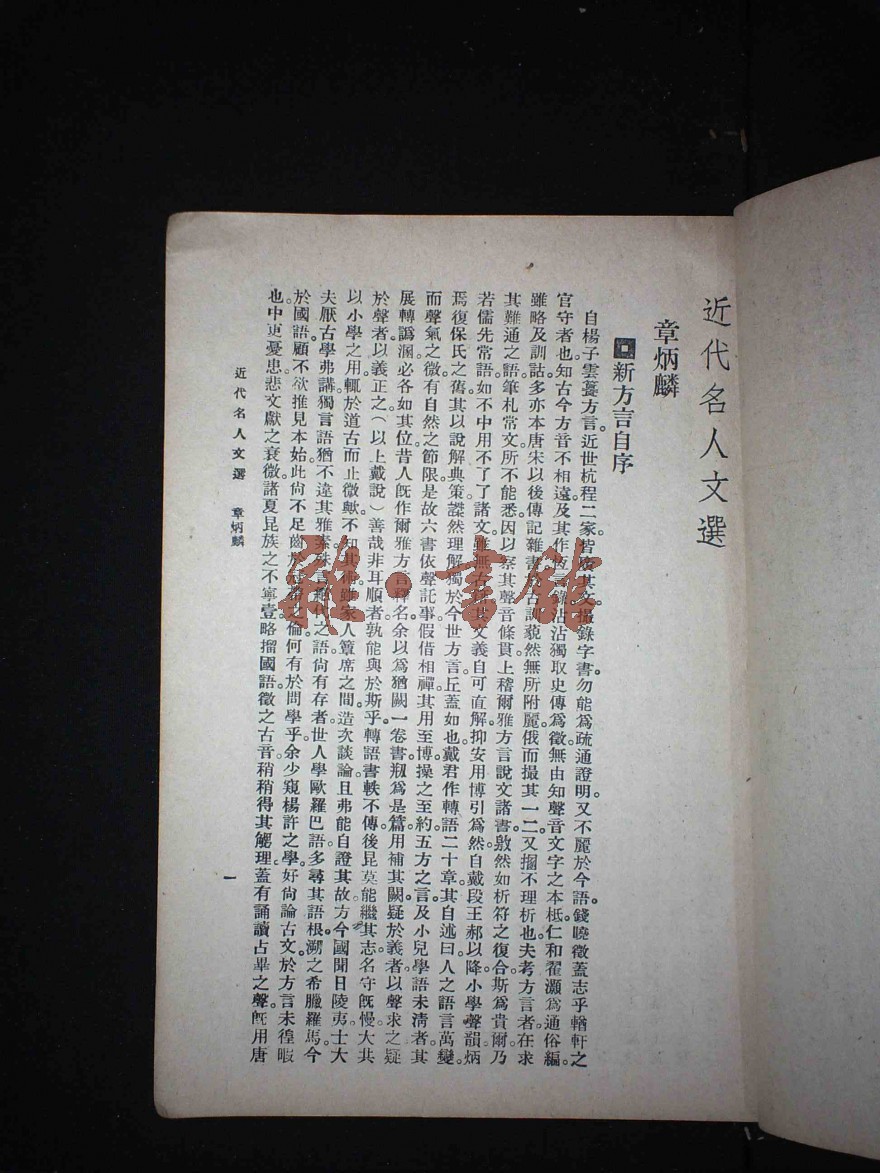 近代名人文選
章炳麟
新方言自序
自楊子雲纂方言。近世杭程二家。皆依其文。撮錄字書。勿能爲疏通證明。又不麗於今語。錢曉徵蓋志乎輶軒之
官守者也。知古今方音不相遠。及其作恆言錄。沾沾獨取史傳爲徵。無由知聲音文字之本柢。仁和翟灝爲通俗編。
雖略及訓詁。多亦本唐宋以後傳記雜書。於古訓藐然無所附麗。俄而撮其一二。又搁不理析也。夫考方言者。在求
其難通之語。筆札常文所不能悉。因以察其聲音條貫。上稽爾雅方言說文諸書。敫然如析符之復合。斯爲貴爾。乃
若儒先常語。如不中用不了了諸文。雖無古籍。其文義自可直解。抑安用博引爲。然自戴段王郝以降。小學聲韻炳
焉。復保氏之舊。其以說解典策。謋然理解。獨於今世方言。丘蓋如也。戴君作轉語二十章。其自述曰。人之語言萬變。
而聲氣之微。有自然之節限。是故六書依聲託事。假借相禪。其用至博。操之至約。五方之言。及小兒學語未淸者。其
展轉譌溷。必各如其位。昔人旣作爾雅方言釋名。余以爲猶闕一卷書。刱爲是篇。用補其闕。疑於義者以聲求之。疑
於聲者以義正之（以上戴說）善哉。非耳順者。孰能與於斯乎。轉語書軼不傳。後昆莫能繼其志。名守旣慢。大共
以小學之用。輒於道古而止。微歟不知其術。雖家人簟席之間。造次談論。且弗能自證其故。方今國聞日陵夷。士大
夫厭古學弗講。獨言語猶不違其雅素。殊言絕代之語。尙有存者。世人學歐羅巴語。多尋其語根。溯之希臘羅馬。今
於國語顧不欲推見本始。此尙不足齒於之倫。何有於問學乎。余少窺楊許之學。好尙論古文。於方言未徨暇
也。中更憂患。悲文獻之衰微。諸夏昆族之不寧壹。略㨨國語。徵之古音。稍稍得其䚡理。蓋有誦讀占畢之聲。旣用唐
近代名人文選　章炳麟
一
雅·書館